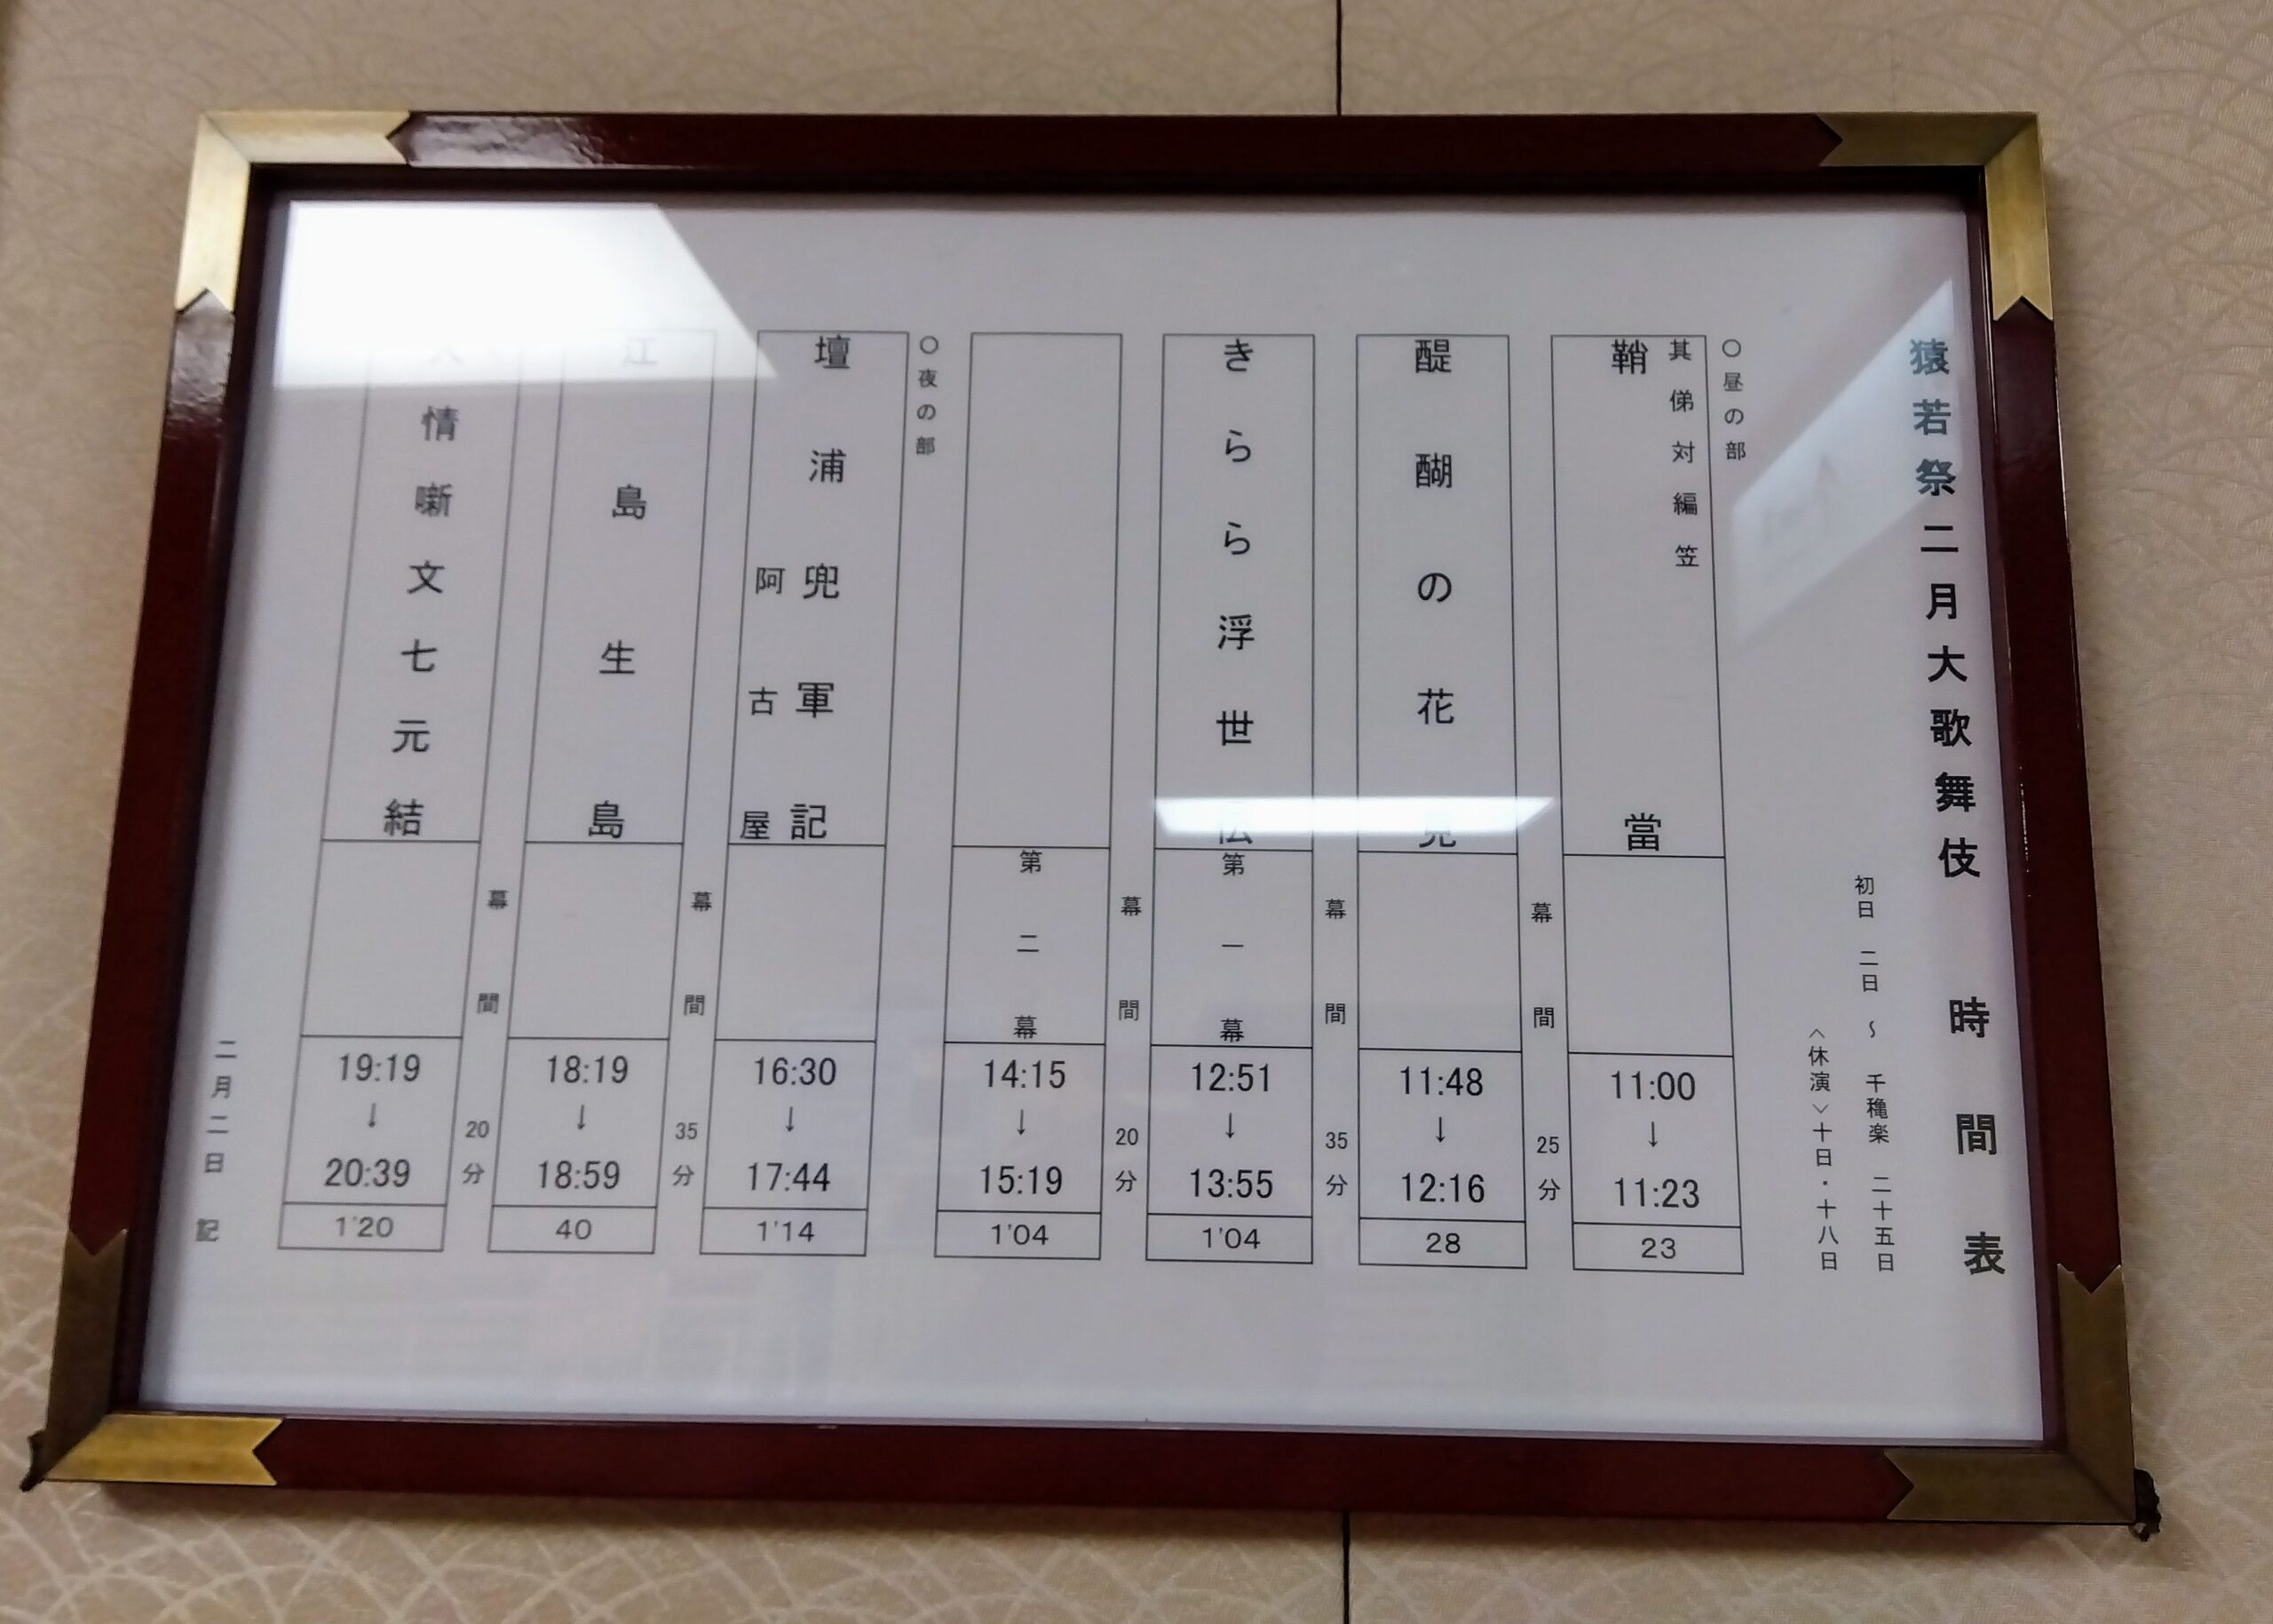 猿若祭二月大歌舞伎 時間表
初日 二日 ~ 千穐楽 二十五日
<休演>十日・十八日
○昼の部
其俤対編笠
鞘當
11:00
↓
11:23
23
幕間
25分
醍醐の花見
11:48
↓
12:16
28
幕間
35分
きらら浮世伝
第一幕
12:51
↓
13:55
1'04
幕間
20分
第二幕
14:15
↓
15:19
1'04
○夜の部
壇浦兜軍記
阿古屋
16:30
↓
17:44
1'14
幕間
35分
江島生島
18:19
↓
18:59
40
幕間
20分
人情噺文七元結
19:19
↓
20:39
1'20
二月二日 記